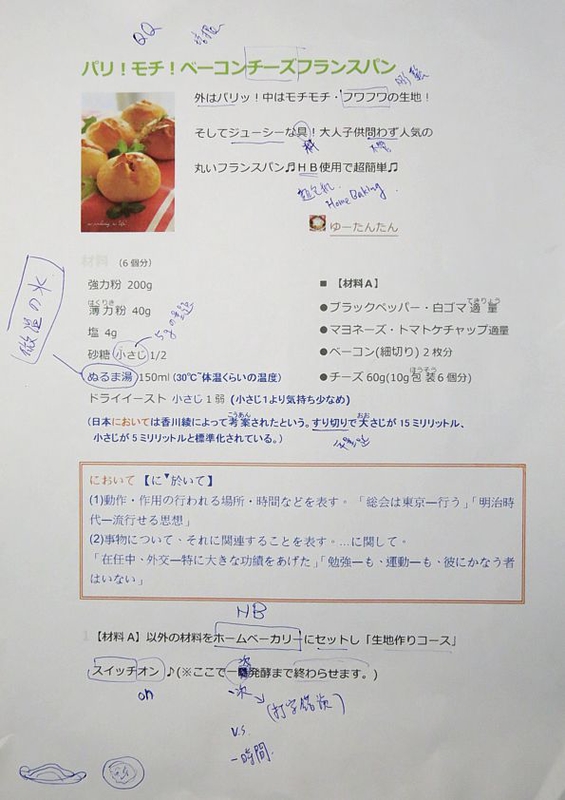 QQ
パリ！モチ！ベーコンチーズフランスパン
外はパリッ！中はモチモチ・フワフワの生地！
そしてジューシーな具！大人子供問わず人気の
丸いフランスパン♫ＨＢ使用で超簡単♫
Home Baking
ゆーたんたん
材料 （6個分）
強力粉 200g
はくりき
薄力粉 40g
塩 4g
砂糖 小さじ 1/2
ぬるま湯 150ml (30℃~体温くらいの温度)
微温の水
ドライイースト 小さじ１弱 (小さじ1より気持ち少なめ)
■ 【材料Ａ】
てきりょう
●ブラックペッパー・白ゴマ 適量
●マヨネーズ・トマトケチャップ適量
●ベーコン(細切り) 2 枚分
ほうそう
●チーズ 60g(10g 包装 6 個分)
こうあん
おお
(日本においては香川綾によって考案されたという。すり切りで大さじが 15 ミリリットル、
小さじが 5 ミリリットルと標準化されている。)
において 【に▼於いて】
(1)動作・作用の行われる場所・時間などを表す。「総会は東京―行う」「明治時
代―流行せる思想」
(2)事物について、それに関連することを表す。…に関して。
「在任中、外交―特に大きな功績をあげた」「勉強―も、運動―も、彼にかなう者
はいない」
HB
1 【材料Ａ】以外の材料をホームベーカリーにセットし「生地作りコース」
スイッチオン♪(※ここで一次発酵まで終わらせます。)
on
一次
(打字錯誤)
v.s
一時間.